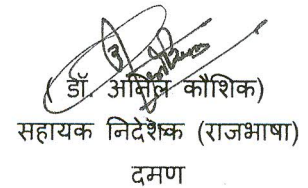 ( डॉ. अनिल कौशिक)
सहायक निदेशक (राजभाषा)
दमण